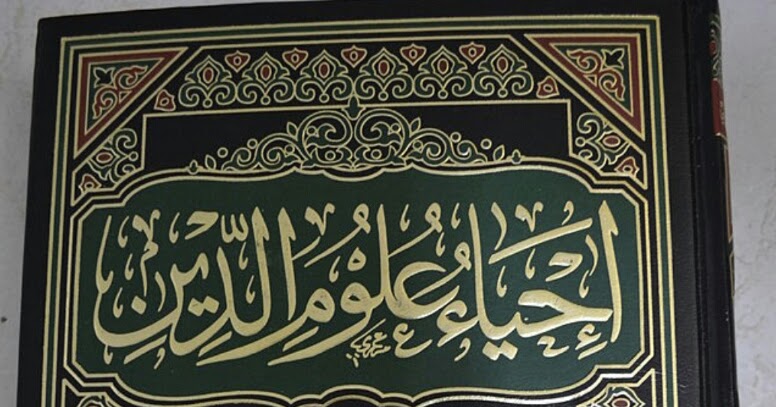 إِحْيَاءُ عُلُوْمِ الدِّيْنِ